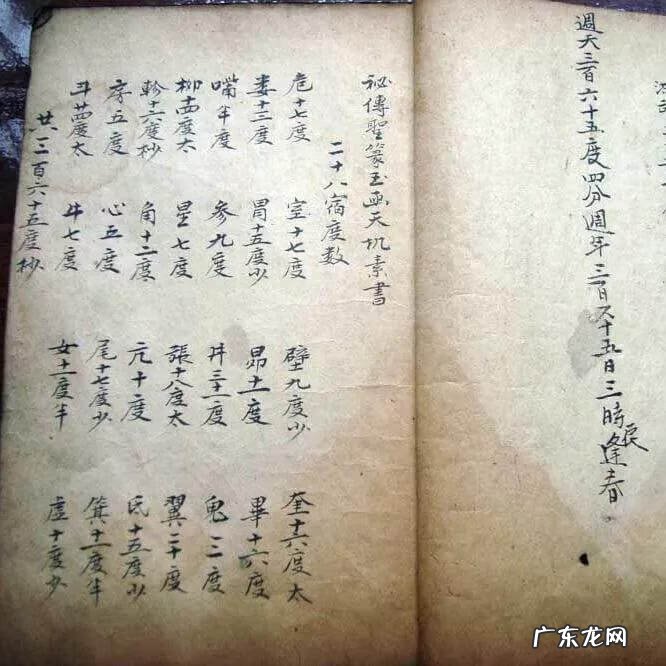 週天三百六十五度四分週年三百六十五日三時辰逢春
祕傳聖篆玉函天机素書
二十八宿度数
危十七度 室十七度 壁九度少 奎十六度太
婁十三度 胃十五度少 昴十一度 畢十六度
嘴半度 参九度 井三十一度 鬼二度
柳十四度太 星七度 張十八度太 翼二十度
軫十六度杪 角十二度 亢十度 氐十五度少
房五度 心五度 尾十七度少 箕十一度半
斗廿四度太 牛七度 女十一度半 虚十度少
共三百六十五度杪
广东龙网